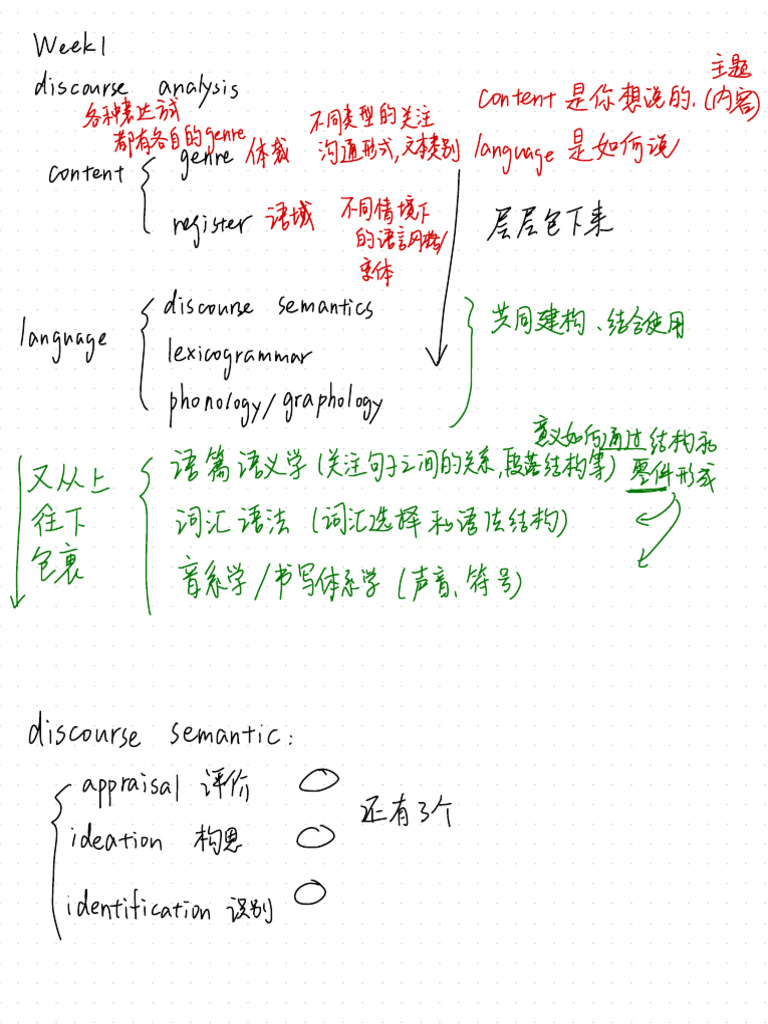 Week1
discourse analysis
各种表达方式
都有各自的genre
不同类型的关注
沟通形式,文本类别
主题
content 是你想说的.(内容)
language 是如何说
content
genre 体裁
register 语域
不同情境下
的语言风格/
变体
层层包下来
language
discourse semantics
lexicogrammar
phonology/graphology
共同建构、结合使用
意义如何通过结构和
零件形成
又从上
往下
包裹
语篇语义学(关注句子之间的关系,段落结构等)
词汇语法(词汇选择和语法结构)
音系学/书写体系学(声音、符号)
discourse semantic:
appraisal 评价
ideation 构思
identification 识别
还有3个